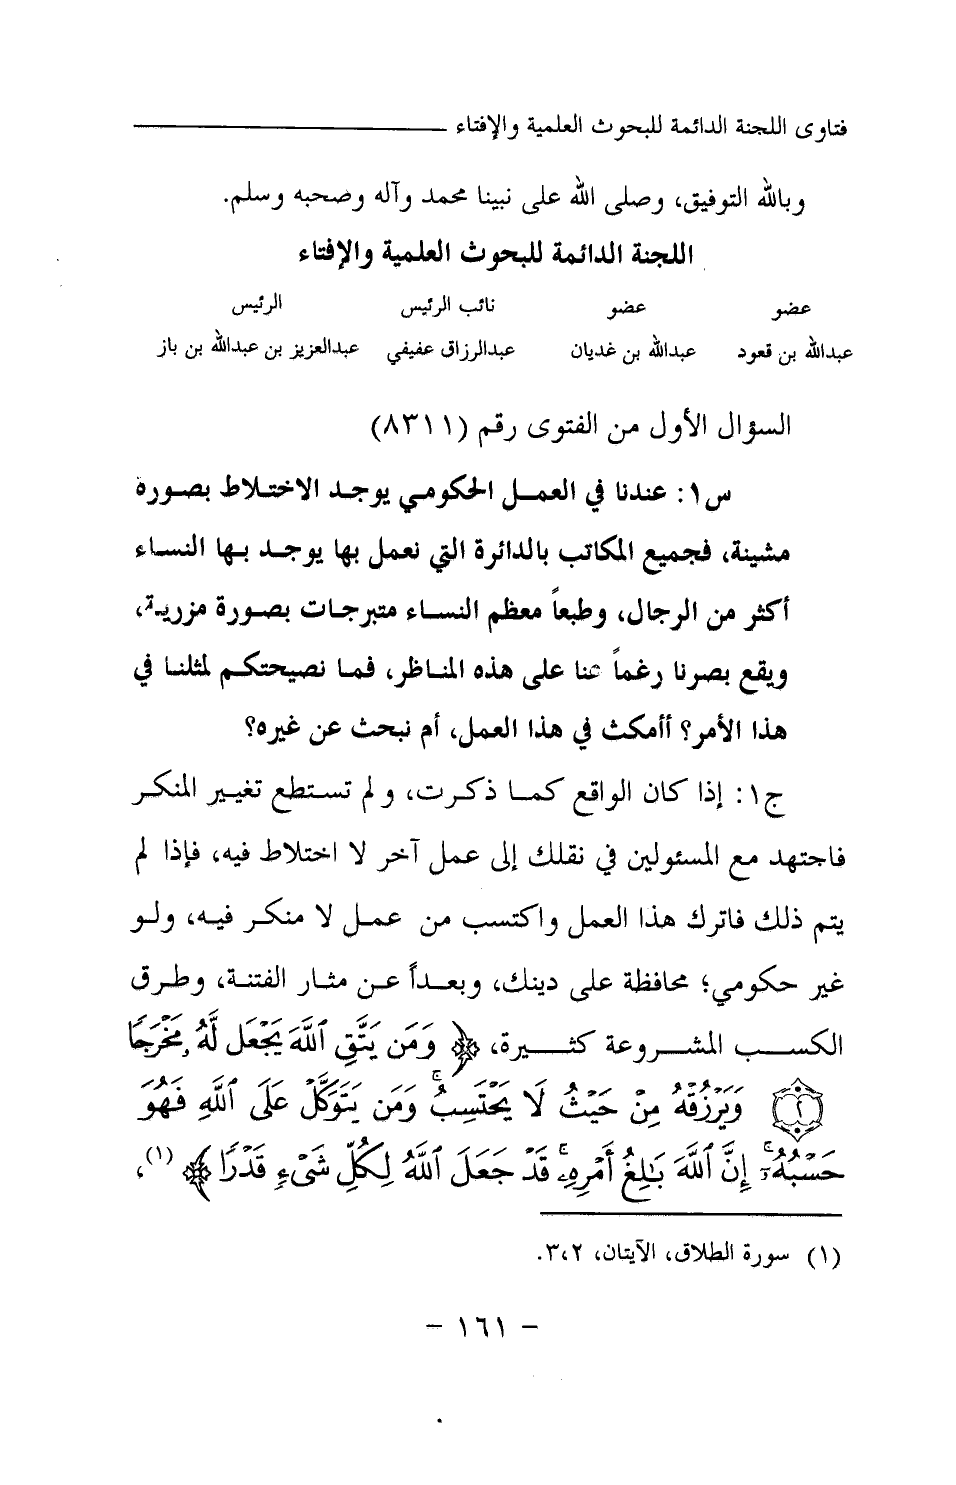 فتاوى اللجنة الدائمة للبحوث العلمية والإفتاء
وبالله التوفيق، وصلى الله على نبينا محمد وآله وصحبه وسلم.
اللجنة الدائمة للبحوث العلمية والإفتاء
عضو عضو نائب الرئيس الرئيس
عبدالله بن قعود عبدالله بن غديان عبدالرزاق عفيفي عبدالعزيز بن عبدالله بن باز
السؤال الأول من الفتوى رقم (٨٣١١)
س١: عندنا في العمل الحكومي يوجد الاختلاط بصورة
مشينة، فجميع المكاتب بالدائرة التي نعمل بها يوجد بها النساء
أكثر من الرجال، وطبعاً معظم النساء متبرجات بصورة مزرية،
ويقع بصرنا رغماً عنا على هذه المناظر، فما نصيحتكم لمثلنا في
هذا الأمر؟ أأمكث في هذا العمل، أم نبحث عن غيره؟
ج١: إذا كان الواقع كما ذكرت، ولم تستطع تغيير المنكر
فاجتهد مع المسئولين في نقلك إلى عمل آخر لا اختلاط فيه، فإذا لم
يتم ذلك فاترك هذا العمل واكتسب من عمل لا منكر فيه، ولو
غير حكومي؛ محافظة على دينك، وبعداً عن مثار الفتنة، وطرق
الكسب المشروعة كثيرة، ﴿ وَمَن يَتَّقِ ٱللَّهَ يَجْعَل لَّهُۥ مَخْرَجًا
٢ وَيَرْزُقْهُ مِنْ حَيْثُ لَا يَحْتَسِبُ ۚ وَمَن يَتَوَكَّلْ عَلَى ٱللَّهِ فَهُوَ
حَسْبُهُۥٓ ۚ إِنَّ ٱللَّهَ بَٰلِغُ أَمْرِهِۦ ۚ قَدْ جَعَلَ ٱللَّهُ لِكُلِّ شَىْءٍ قَدْرًا ﴾ (١)،
(١) سورة الطلاق، الآيتان، ٣،٢.
- ١٦١ -